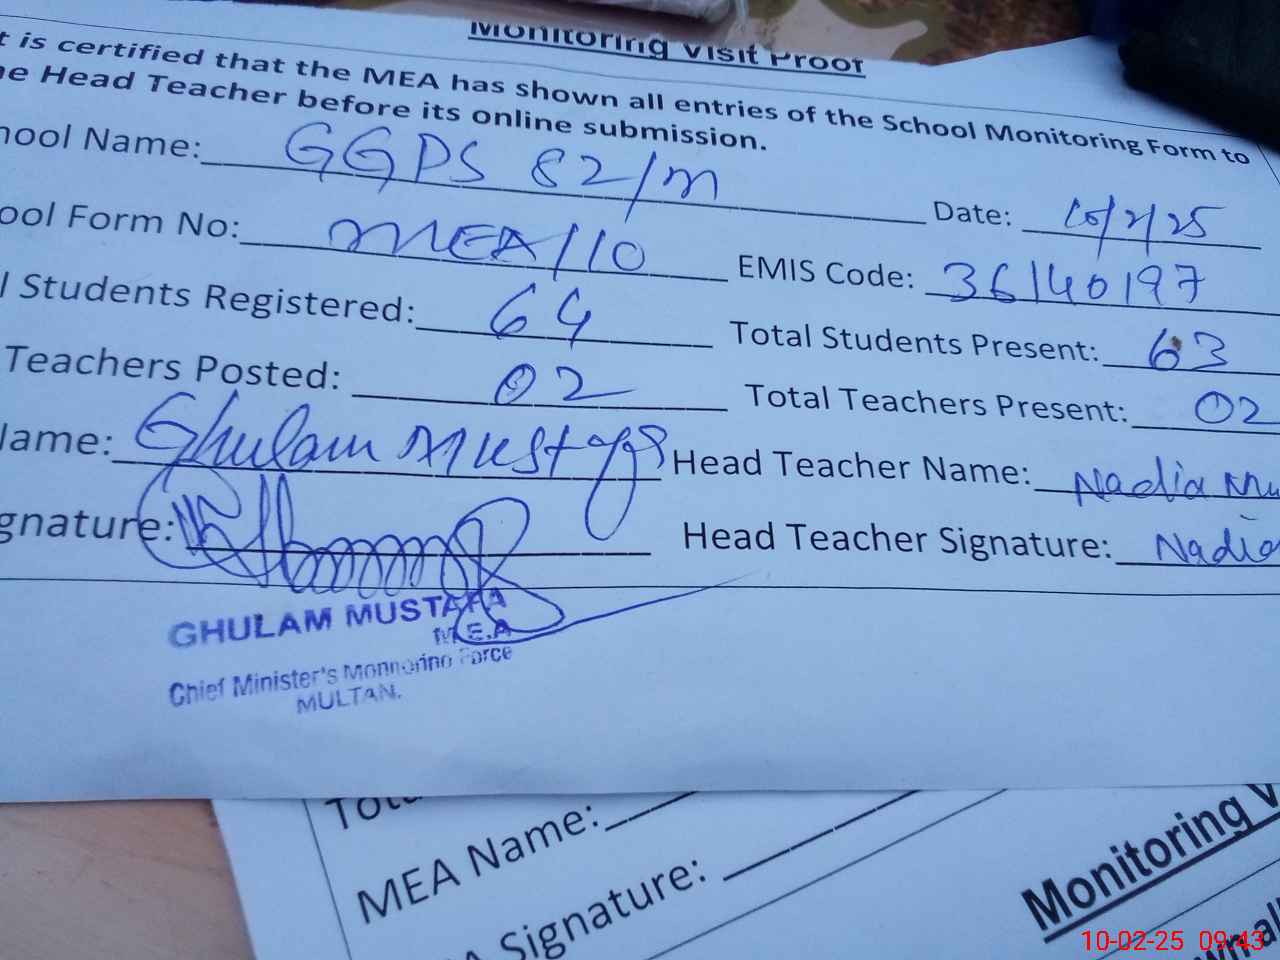 Monitoring Visit Proof
t is certified that the MEA has shown all entries of the School Monitoring Form to
he Head Teacher before its online submission.
hool Name: GGPS 82/m
Date: 10/2/25
ool Form No: MEA/10
EMIS Code: 36140197
l Students Registered: 64
Total Students Present: 63
Teachers Posted: 02
Total Teachers Present: 02
Name: Ghulam Mustafa
Head Teacher Name: Nadia Mu
gnature:
Head Teacher Signature: Nadia
GHULAM MUSTAFA
M.E.A
Chief Minister's Monitoring Force
MULTAN.
Tota
MEA Name:
A Signature:
Monitoring V
wn all
10-02-25 09:43